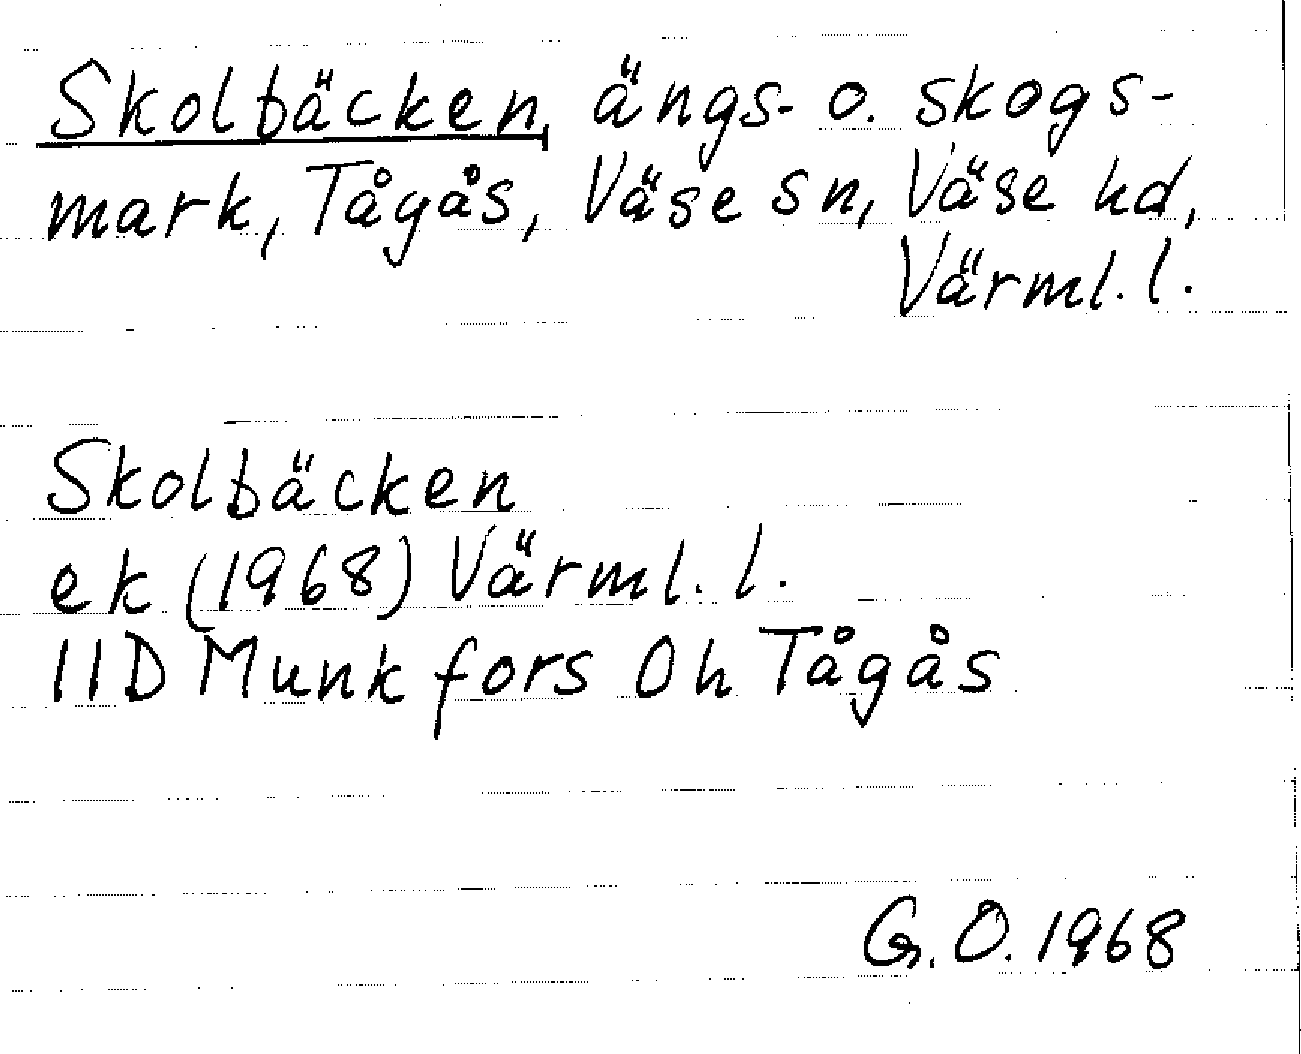 Skolbäcken, ängs- o. skogs-
mark, Tågås, Väse sn, Väse hd,
Värml. l.
Skolbäcken
ek (1968) Värml. l.
11D Munkfors 0h Tågås
G. O. 1968